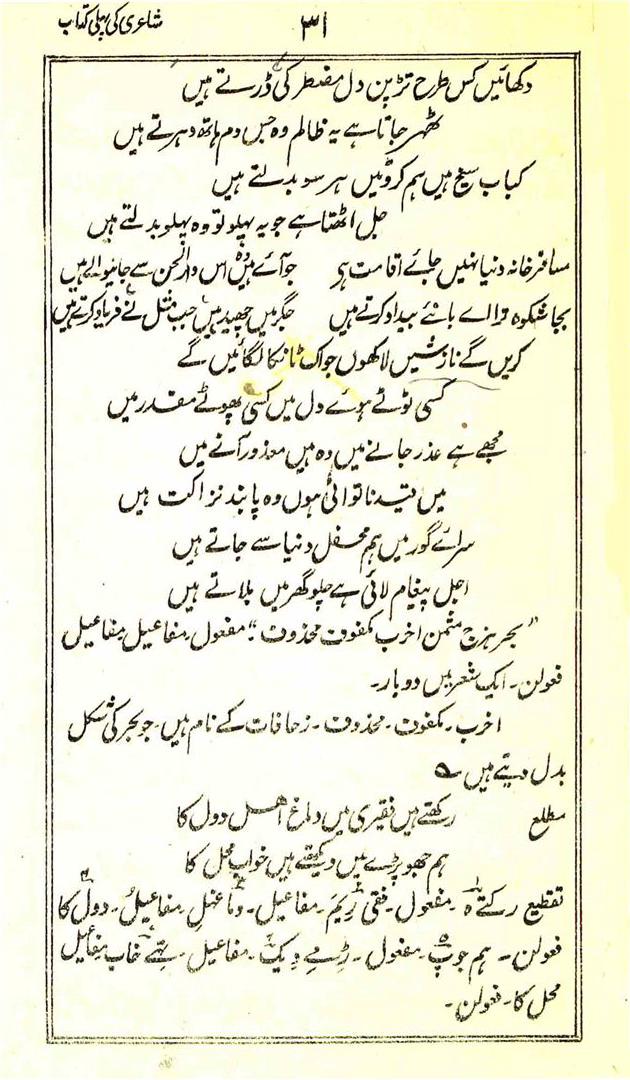 شاعری کی پہلی کتاب
۳۱
دکھائیں کس طرح تڑپن دل مضطر کی ڈرتے ہیں
ٹھہر جاتا ہے یہ ظالم وہ جس دم ہاتھ دہرتے ہیں
کباب سیخ ہیں ہم کروٹیں ہر سو بدلتے ہیں
جل اٹھتا ہے جو یہ پہلو تو وہ پہلو بدلتے ہیں
مسافر خانہ دنیا نہیں جائے اقامت ہے جو آئے ہیں وہ اس دار المحن سے جانیوالے ہیں
بجا شکوہ ترا اے بانئے بیداد کرتے ہیں جگر میں چھید ہیں جب مثل نے فریاد کرتے ہیں
کریں گے نازشیں لاکھوں جو اک ٹانکا لگائیں گے
کسی ٹوٹے ہوئے دل میں کسی پھوٹے مقدر میں
مجھے ہے عذر جانے میں وہ ہیں معذور آنے میں
میں قید ناتوانی ہوں وہ پابند نزاکت ہیں
سرائے گور میں ہم محفل دنیا سے جاتے ہیں
اجل پیغام لائی ہے چلو گھر میں بلاتے ہیں
"بحر ہزج مثمن اخرب مکفوف محذوف" مفعول مفاعیل مفاعیل
فعولن۔ ایک شعر میں دوبار۔
اخرب۔ مکفوف۔ محذوف۔ زحافات کے نام ہیں۔ جو بحر کی شکل
بدل دیتے ہیں ۵
مطلع رکھتے ہیں فقیری میں دماغ اھل دول کا
ہم جھوپڑے میں دیکھتے ہیں خواب محل کا
تقطیع رکتے ہ۔ مفعول۔ فقی ریم۔ مفاعیل۔ دماغہل۔ مفاعیل۔ دول کا
فعولن۔ ہم جوپ۔ مفعول۔ ڑے مے دیک۔ مفاعیل۔ تہے خاب مفاعیل
محل کا۔ فعولن۔